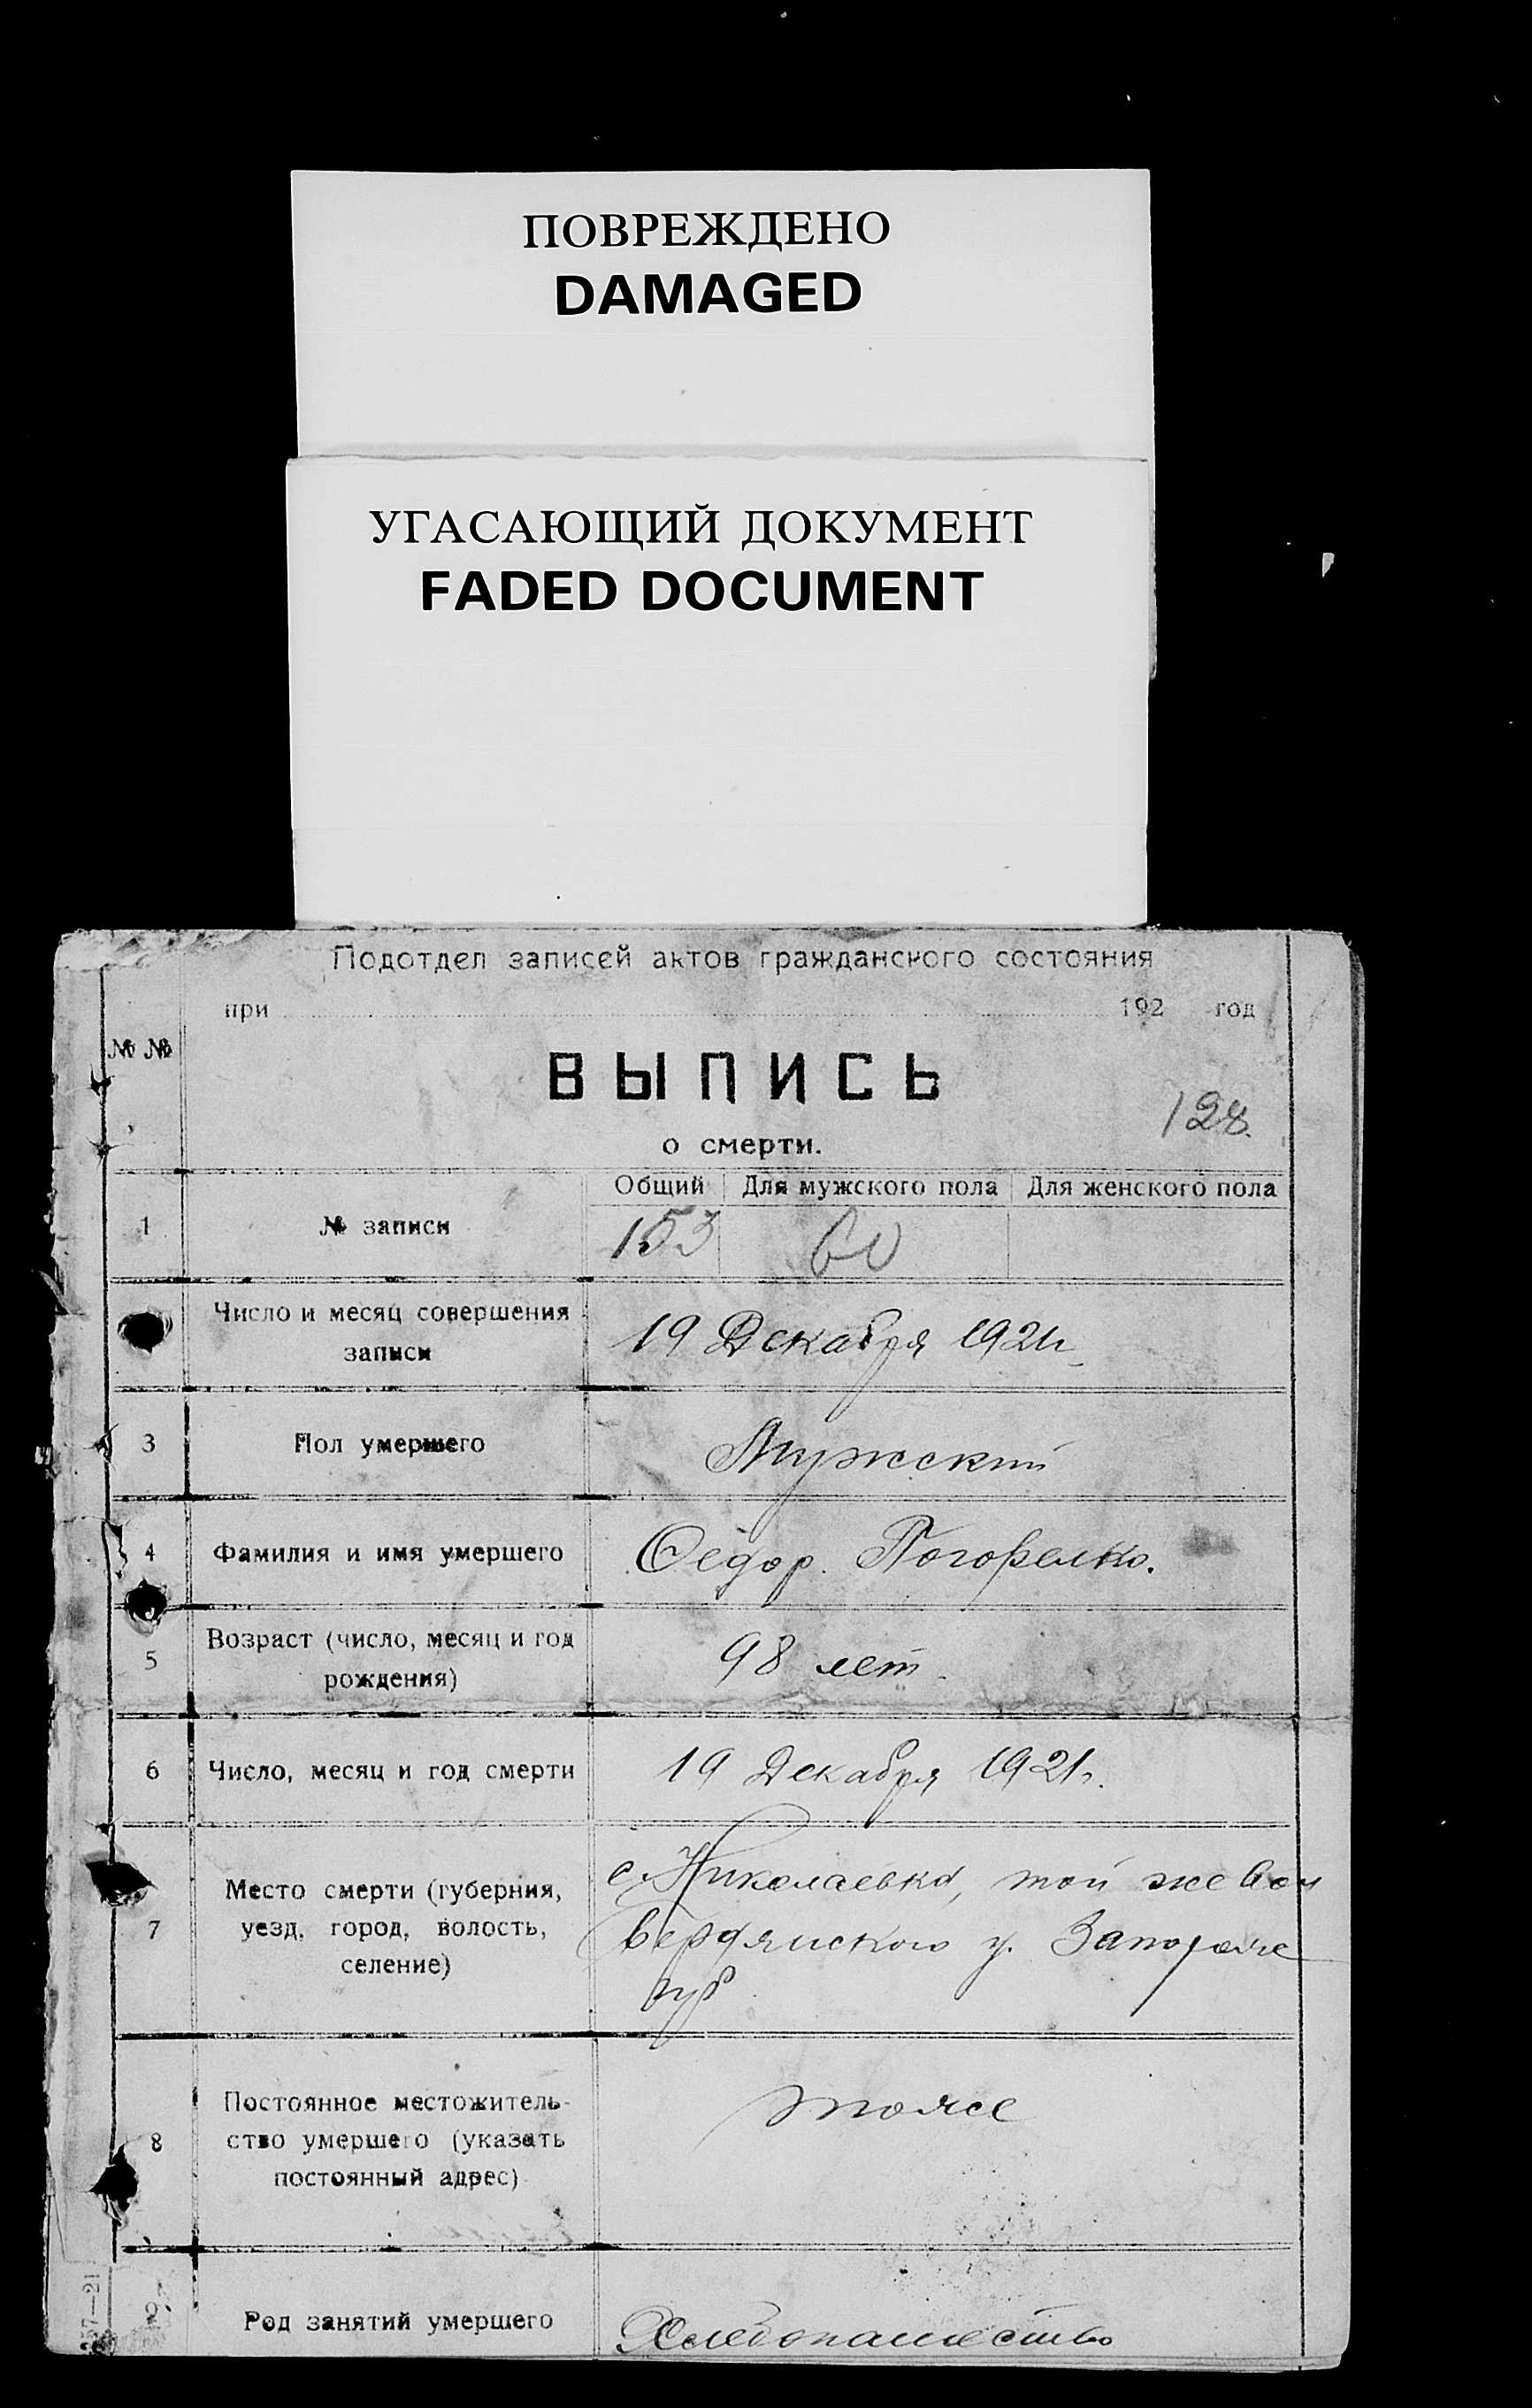 ПОВРЕЖДЕНО
DAMAGED
УГАСАЮЩИЙ ДОКУМЕНТ
FADED DOCUMENT
Подотдел записей актов гражданского состояния
при 192 год
№ №
ВЫПИСЬ
128
о смерти.
Общий Для мужского пола Для женского пола
1 № записи 153 60
Число и месяц совершения
записи
19 Декабря 1921г
3 Пол умершего Мужский
4 Фамилия и имя умершего Федор. Погорелко.
Возраст (число, месяц и год
5 рождения)
98 лет
6 Число, месяц и год смерти 19 Декабря 1921г.
с. Николаевка, той же вол
Место смерти (губерния,
7 уезд, город, волость,
селение)
Бердянского у. Запорож
губ
Постоянное местожитель-
8 ство умершего (указать
постоянный адрес)
тоже
9 Род занятий умершего Хлебопашество